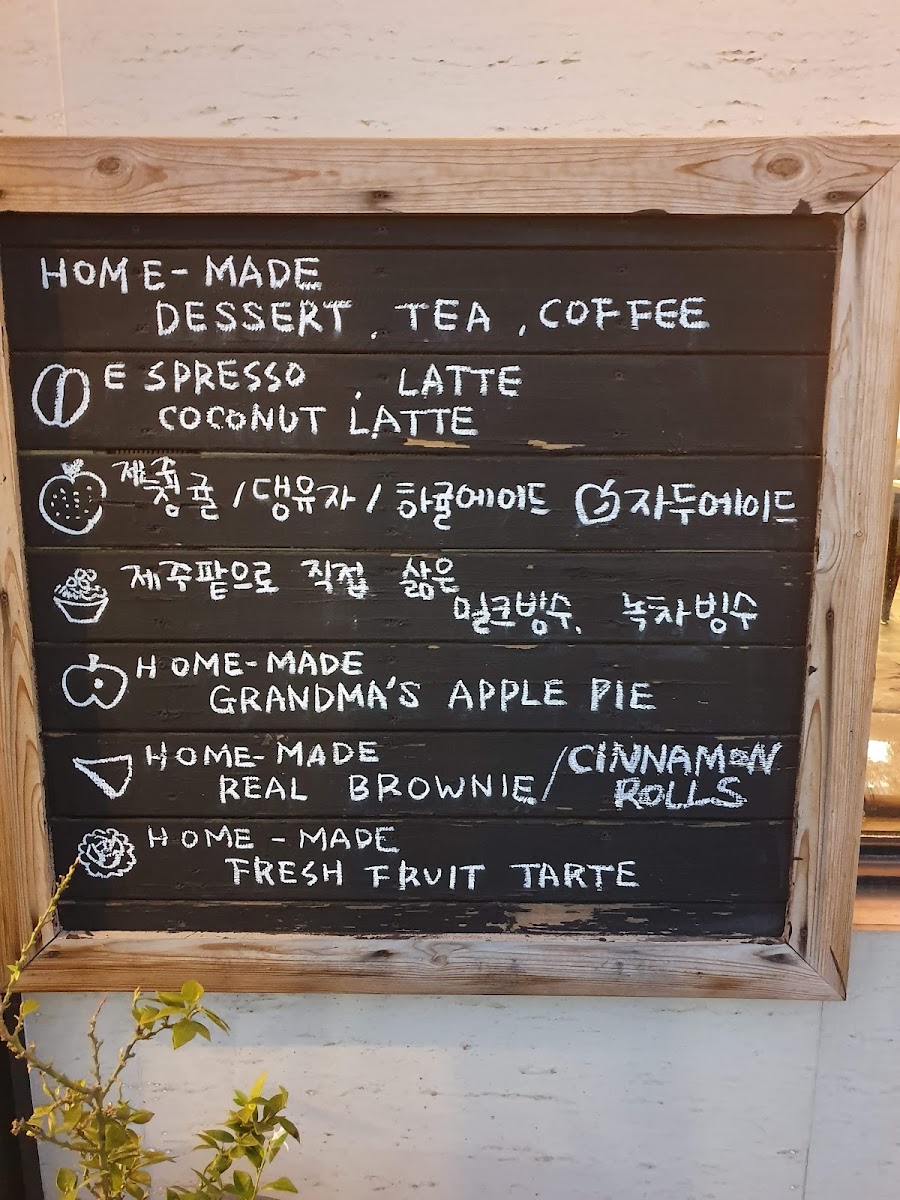 HOME-MADE
DESSERT, TEA, COFFEE
ESPRESSO, LATTE
COCONUT LATTE
제주
청귤/댕유자/하귤에이드 자두에이드
제주팥으로 직접 삶은
밀크빙수, 녹차빙수
HOME-MADE
GRANDMA'S APPLE PIE
HOME-MADE
REAL BROWNIE/CINNAMON ROLLS
HOME-MADE
FRESH FRUIT TARTE